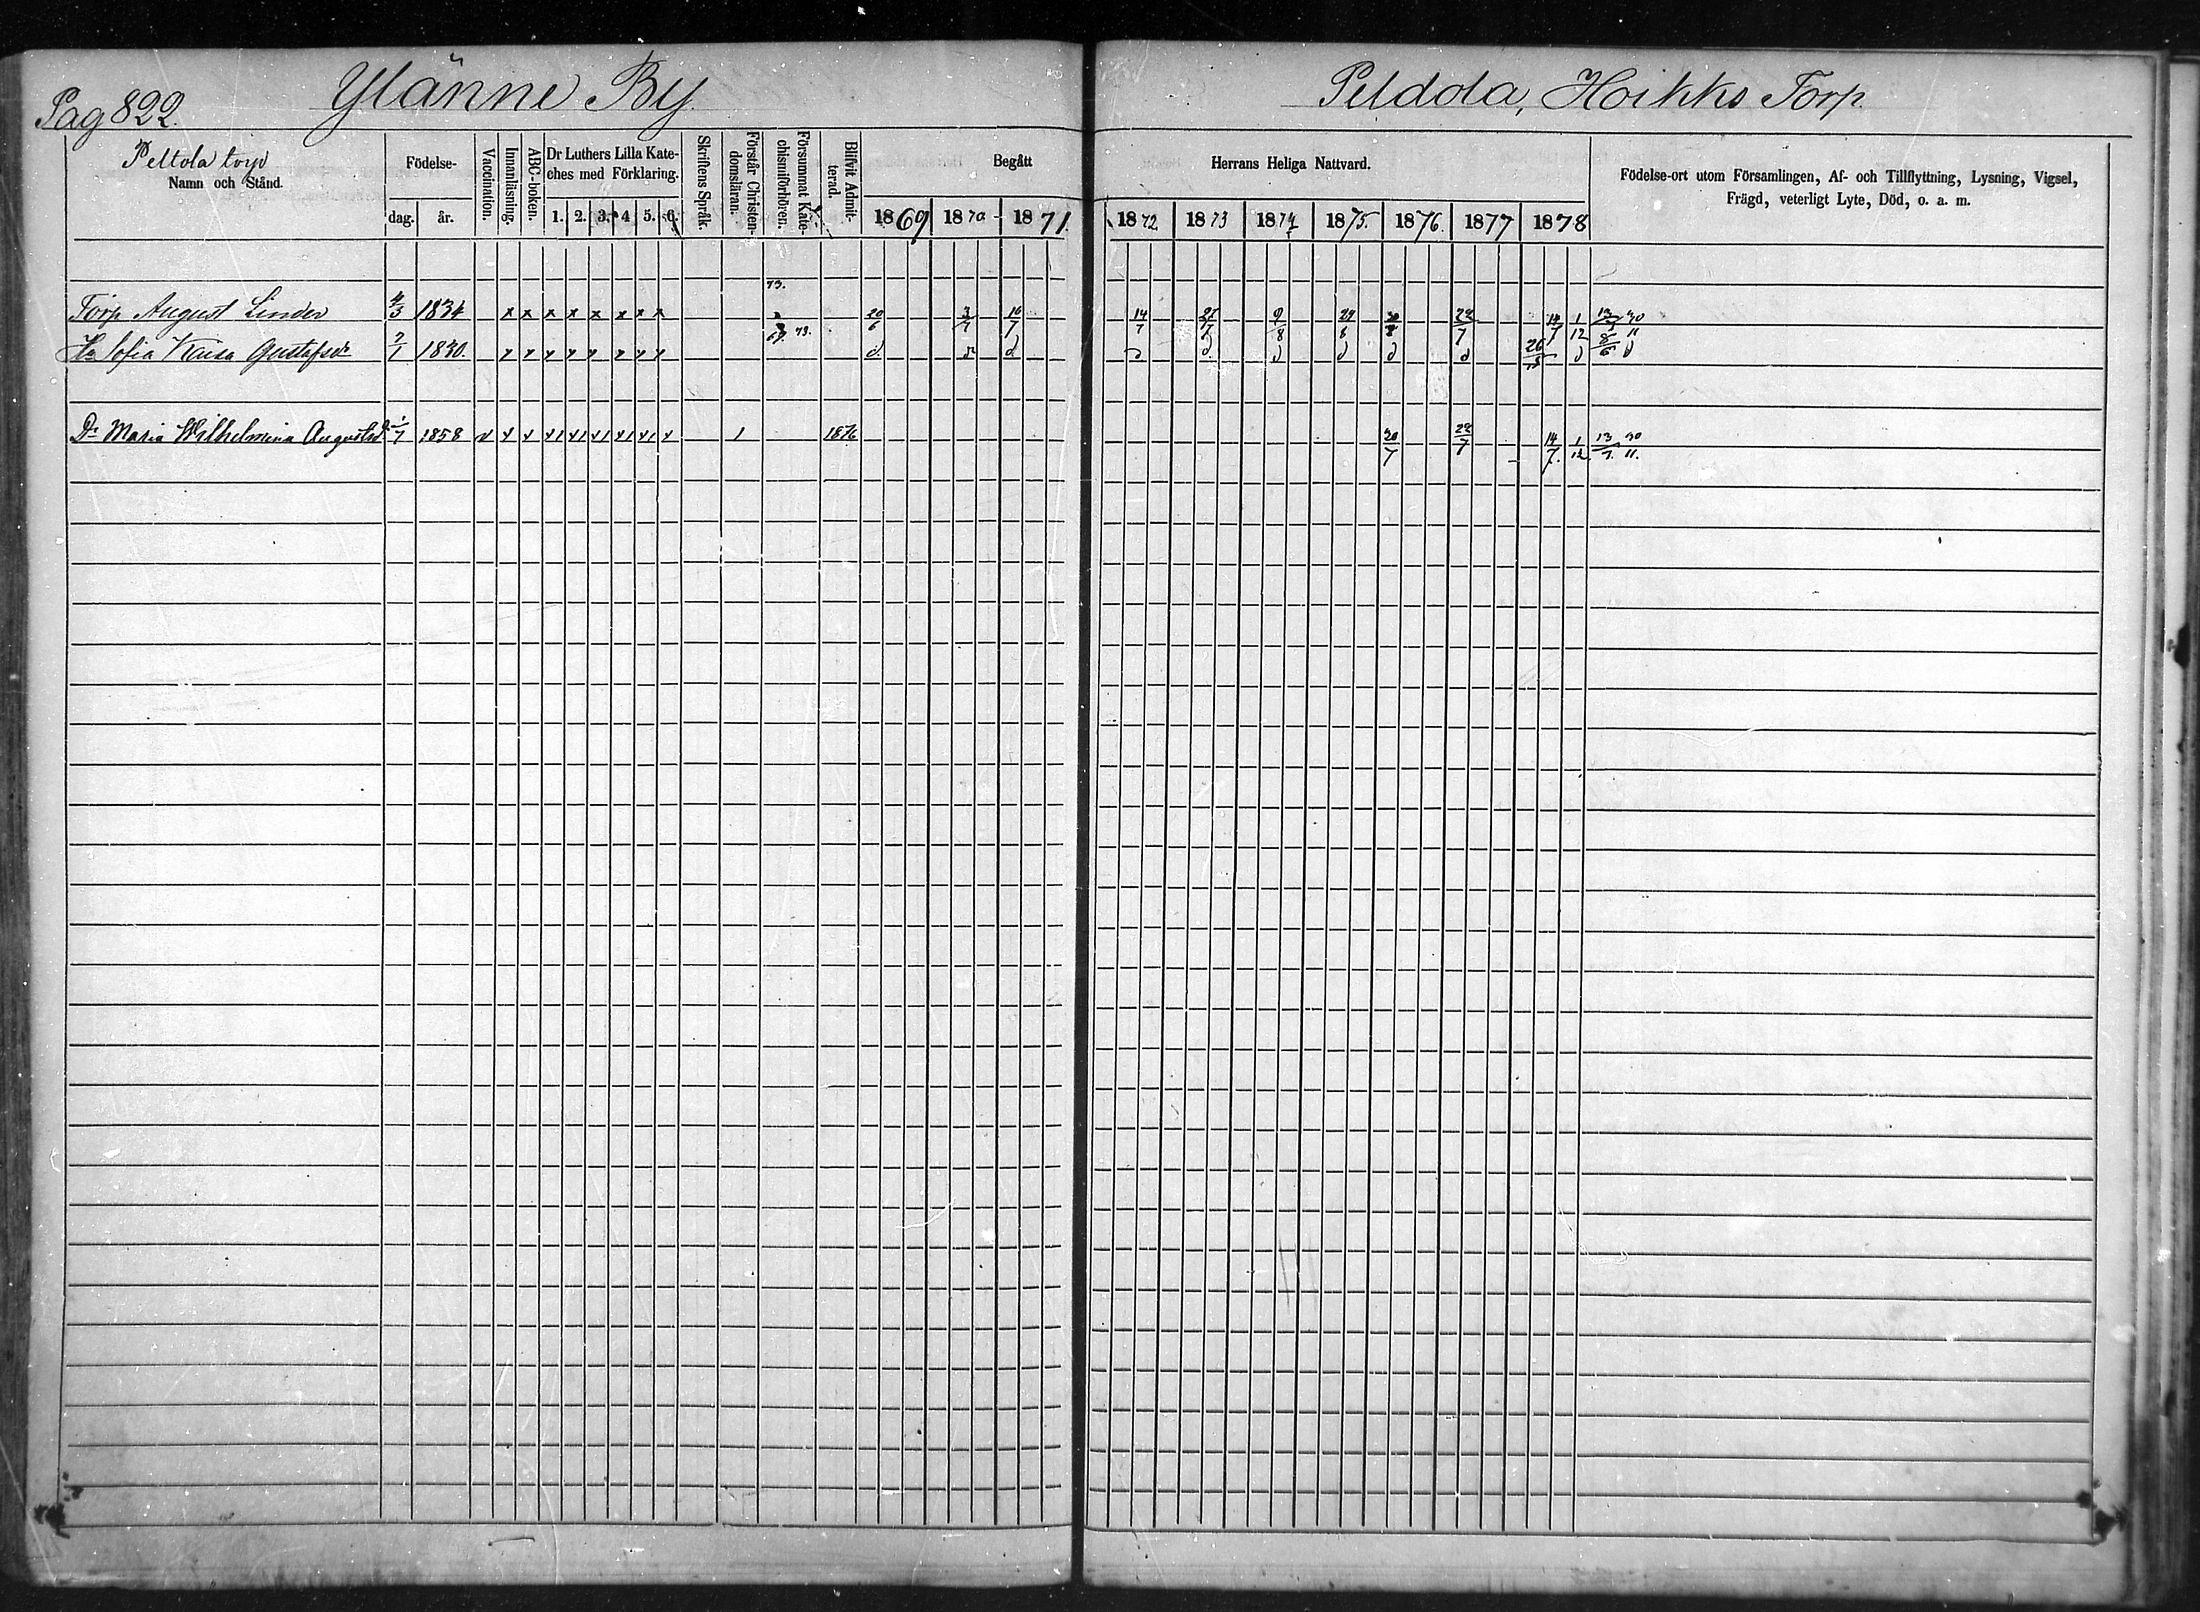 Pag 822. Ylänne By Peldola, Hoikko Torp.
Peltola torp
Namn och Stånd.
Födelse-
dag. år.
Vaccination.
Innanläsning.
ABC-boken.
Dr Luthers Lilla Kate-
ches med Förklaring.
1. 2. 3. 4 5. 6.
Skriftens Språk.
Förstår Christen-
domsläran.
Försummat Kate-
chismiförhören.
Blifvit Admit-
terad.
Begått Herrans Heliga Nattvard.
1869 1870 1871. 1872. 1873 1874 1875. 1876. 1877 1878
Födelse-ort utom Församlingen, Af- och Tillflyttning, Lysning, Vigsel,
Frägd, veterligt Lyte, Död, o. a. m.
73.
Torp August Linder 4/3 1834 x x x x x x x x 20/6 3/7 16/7 14/7 27/7 9/8 22/7 14/7 1/12
69. 73.
Hu Sofia Kaisa Gustafsdr 1830. d d d d d d d 26/5 d
Dr Maria Wilhelmina Augustsdr 1/7 1858 1 1876 30/7 22/7 14/7. 1/12 13/7. 30/11.